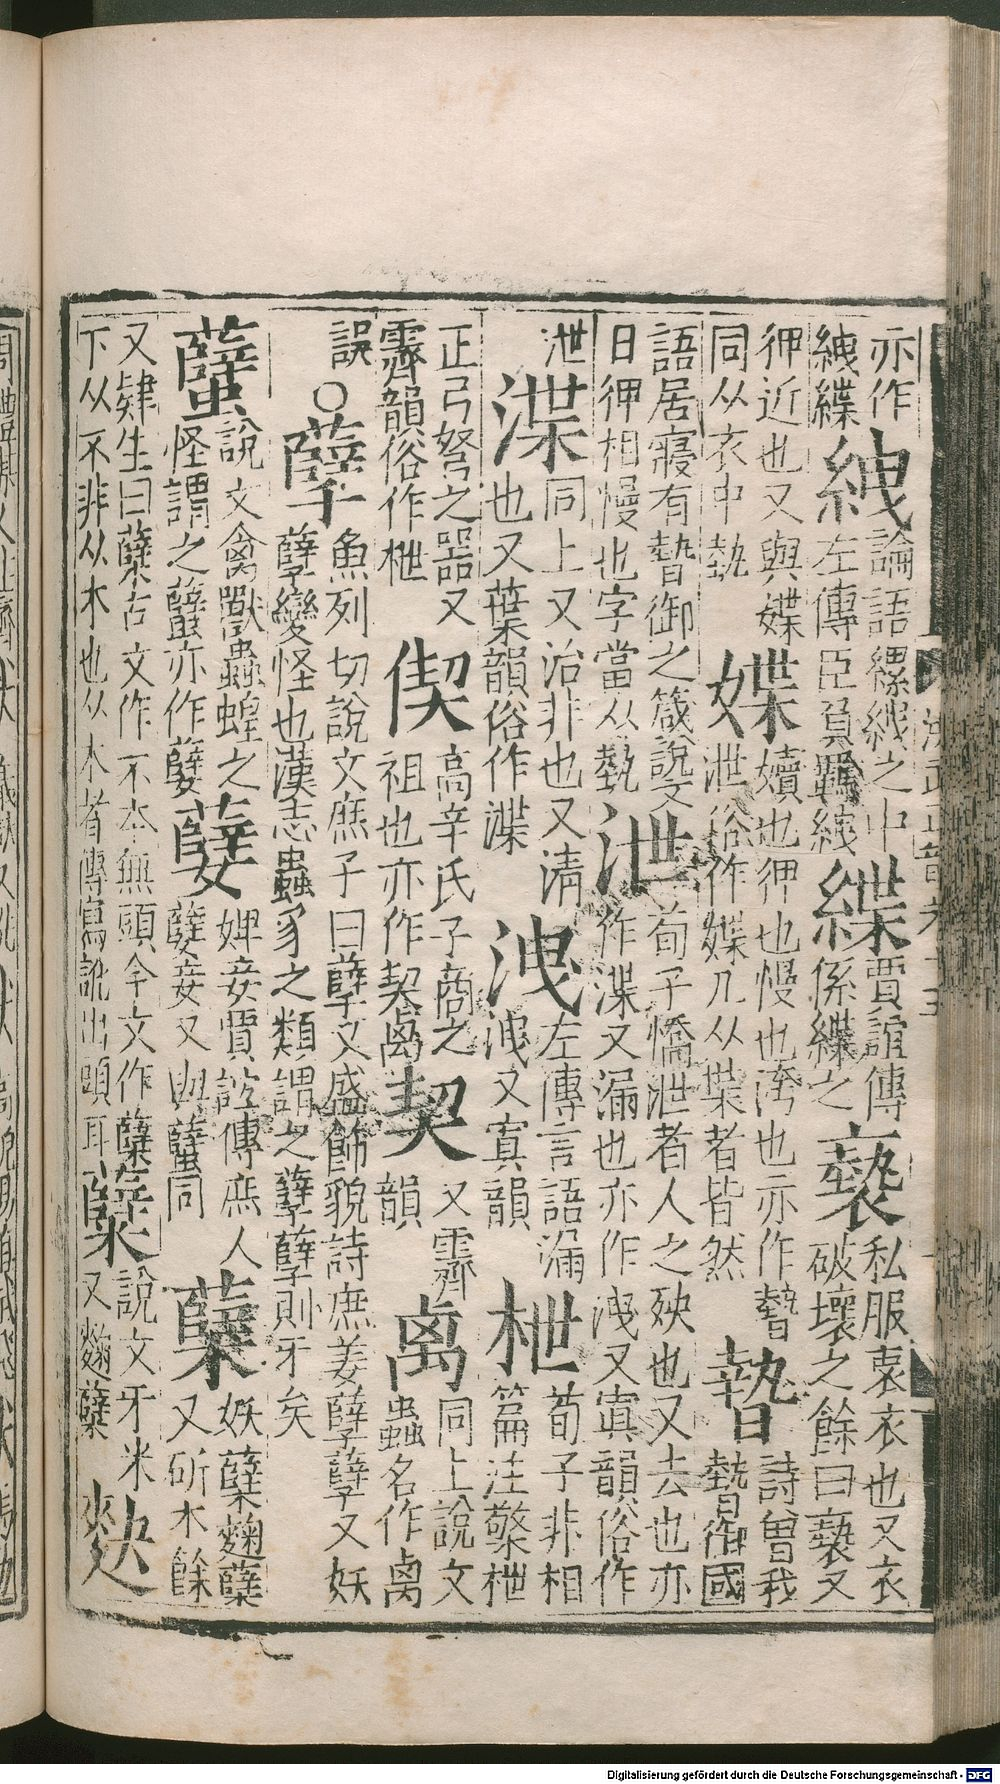 亦作
絏緤
絏
論語縲絏之中
左傳臣負羈絏
緤
賈誼傳
係緤之
褻
私服裒衣也又衣
破壞之餘曰褻又
狎近也又與媟
同从衣中埶
媟
嬻也狎也慢也洿也亦作暬
泄俗作媟凡从枼者皆然
暬
詩曾我
暬御國
語居寢有暬御之箴說文
日狎相慢也字當从埶
泄
荀子憍泄者人之殃也又去也亦
作渫又漏也亦作洩又寘韻俗作
泄
渫
同上又治井也又清
也又葉韻俗作渫
洩
左傳言語漏
洩又寘韻
枻
荀子非相
篇注檠枻
正弓弩之器又
霽韻俗作枻
偰
高辛氏子商之
祖也亦作契离
契
又霽
韻
离
同上說文
蟲名作禼
誤
○孼
魚列切說文庶子曰孼又盛飾貌詩庶姜孼孼又妖
孼變怪也漢志蟲豸之類謂之孼孼則牙矣
蠥
說文禽獸蟲蝗之
怪謂之蠥亦作㜸
㜸
婢妾賈誼傳庶人
㜸妾又與蠥同
櫱
妖櫱麴櫱
又斫木餘
又肄生曰櫱古文作不本無頭今文作櫱
下从不非从木也从木者傳寫訛出頭耳
糱
說文牙米
又麴糱
䴬
Digitalisierung gefördert durch die Deutsche Forschungsgemeinschaft - DFG